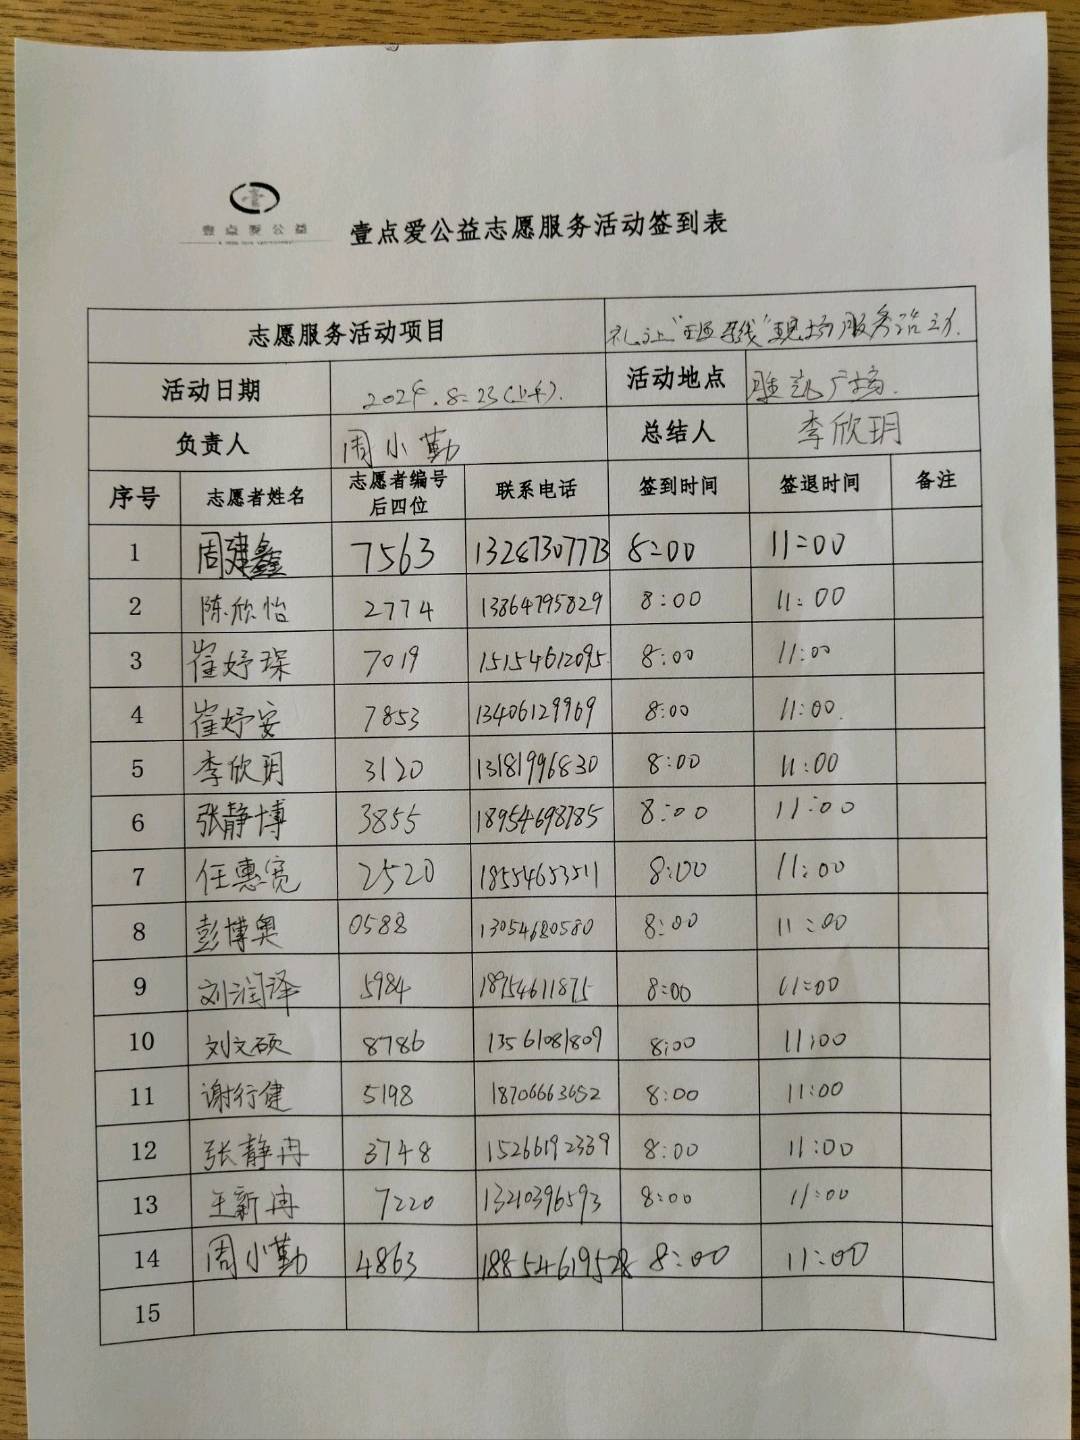 壹点爱公益
壹点爱公益志愿服务活动签到表
志愿服务活动项目 礼上"斑马线"现场服务活动.
活动日期 2024.8.23(上午). 活动地点 胜凯广场.
负责人 周小勤 总结人 李欣玥
序号 志愿者姓名 志愿者编号后四位 联系电话 签到时间 签退时间 备注
1 周建鑫 7563 13287307773 8:00 11:00
2 陈欣怡 2774 13864795829 8:00 11:00
3 崔妤琛 7019 15154612095 8:00 11:00
4 崔妤安 7853 13406129969 8:00 11:00
5 李欣玥 3120 13181996830 8:00 11:00
6 张静博 3855 18954698785 8:00 11:00
7 任惠宽 2520 18554653511 8:00 11:00
8 彭博奥 0588 13054680580 8:00 11:00
9 刘润泽 5984 18954611875 8:00 11:00
10 刘文硕 8786 13561081809 8:00 11:00
11 谢行健 5198 18706663652 8:00 11:00
12 张静冉 3748 15266192339 8:00 11:00
13 王新冉 7220 13210396593 8:00 11:00
14 周小勤 4863 18854619528 8:00 11:00
15